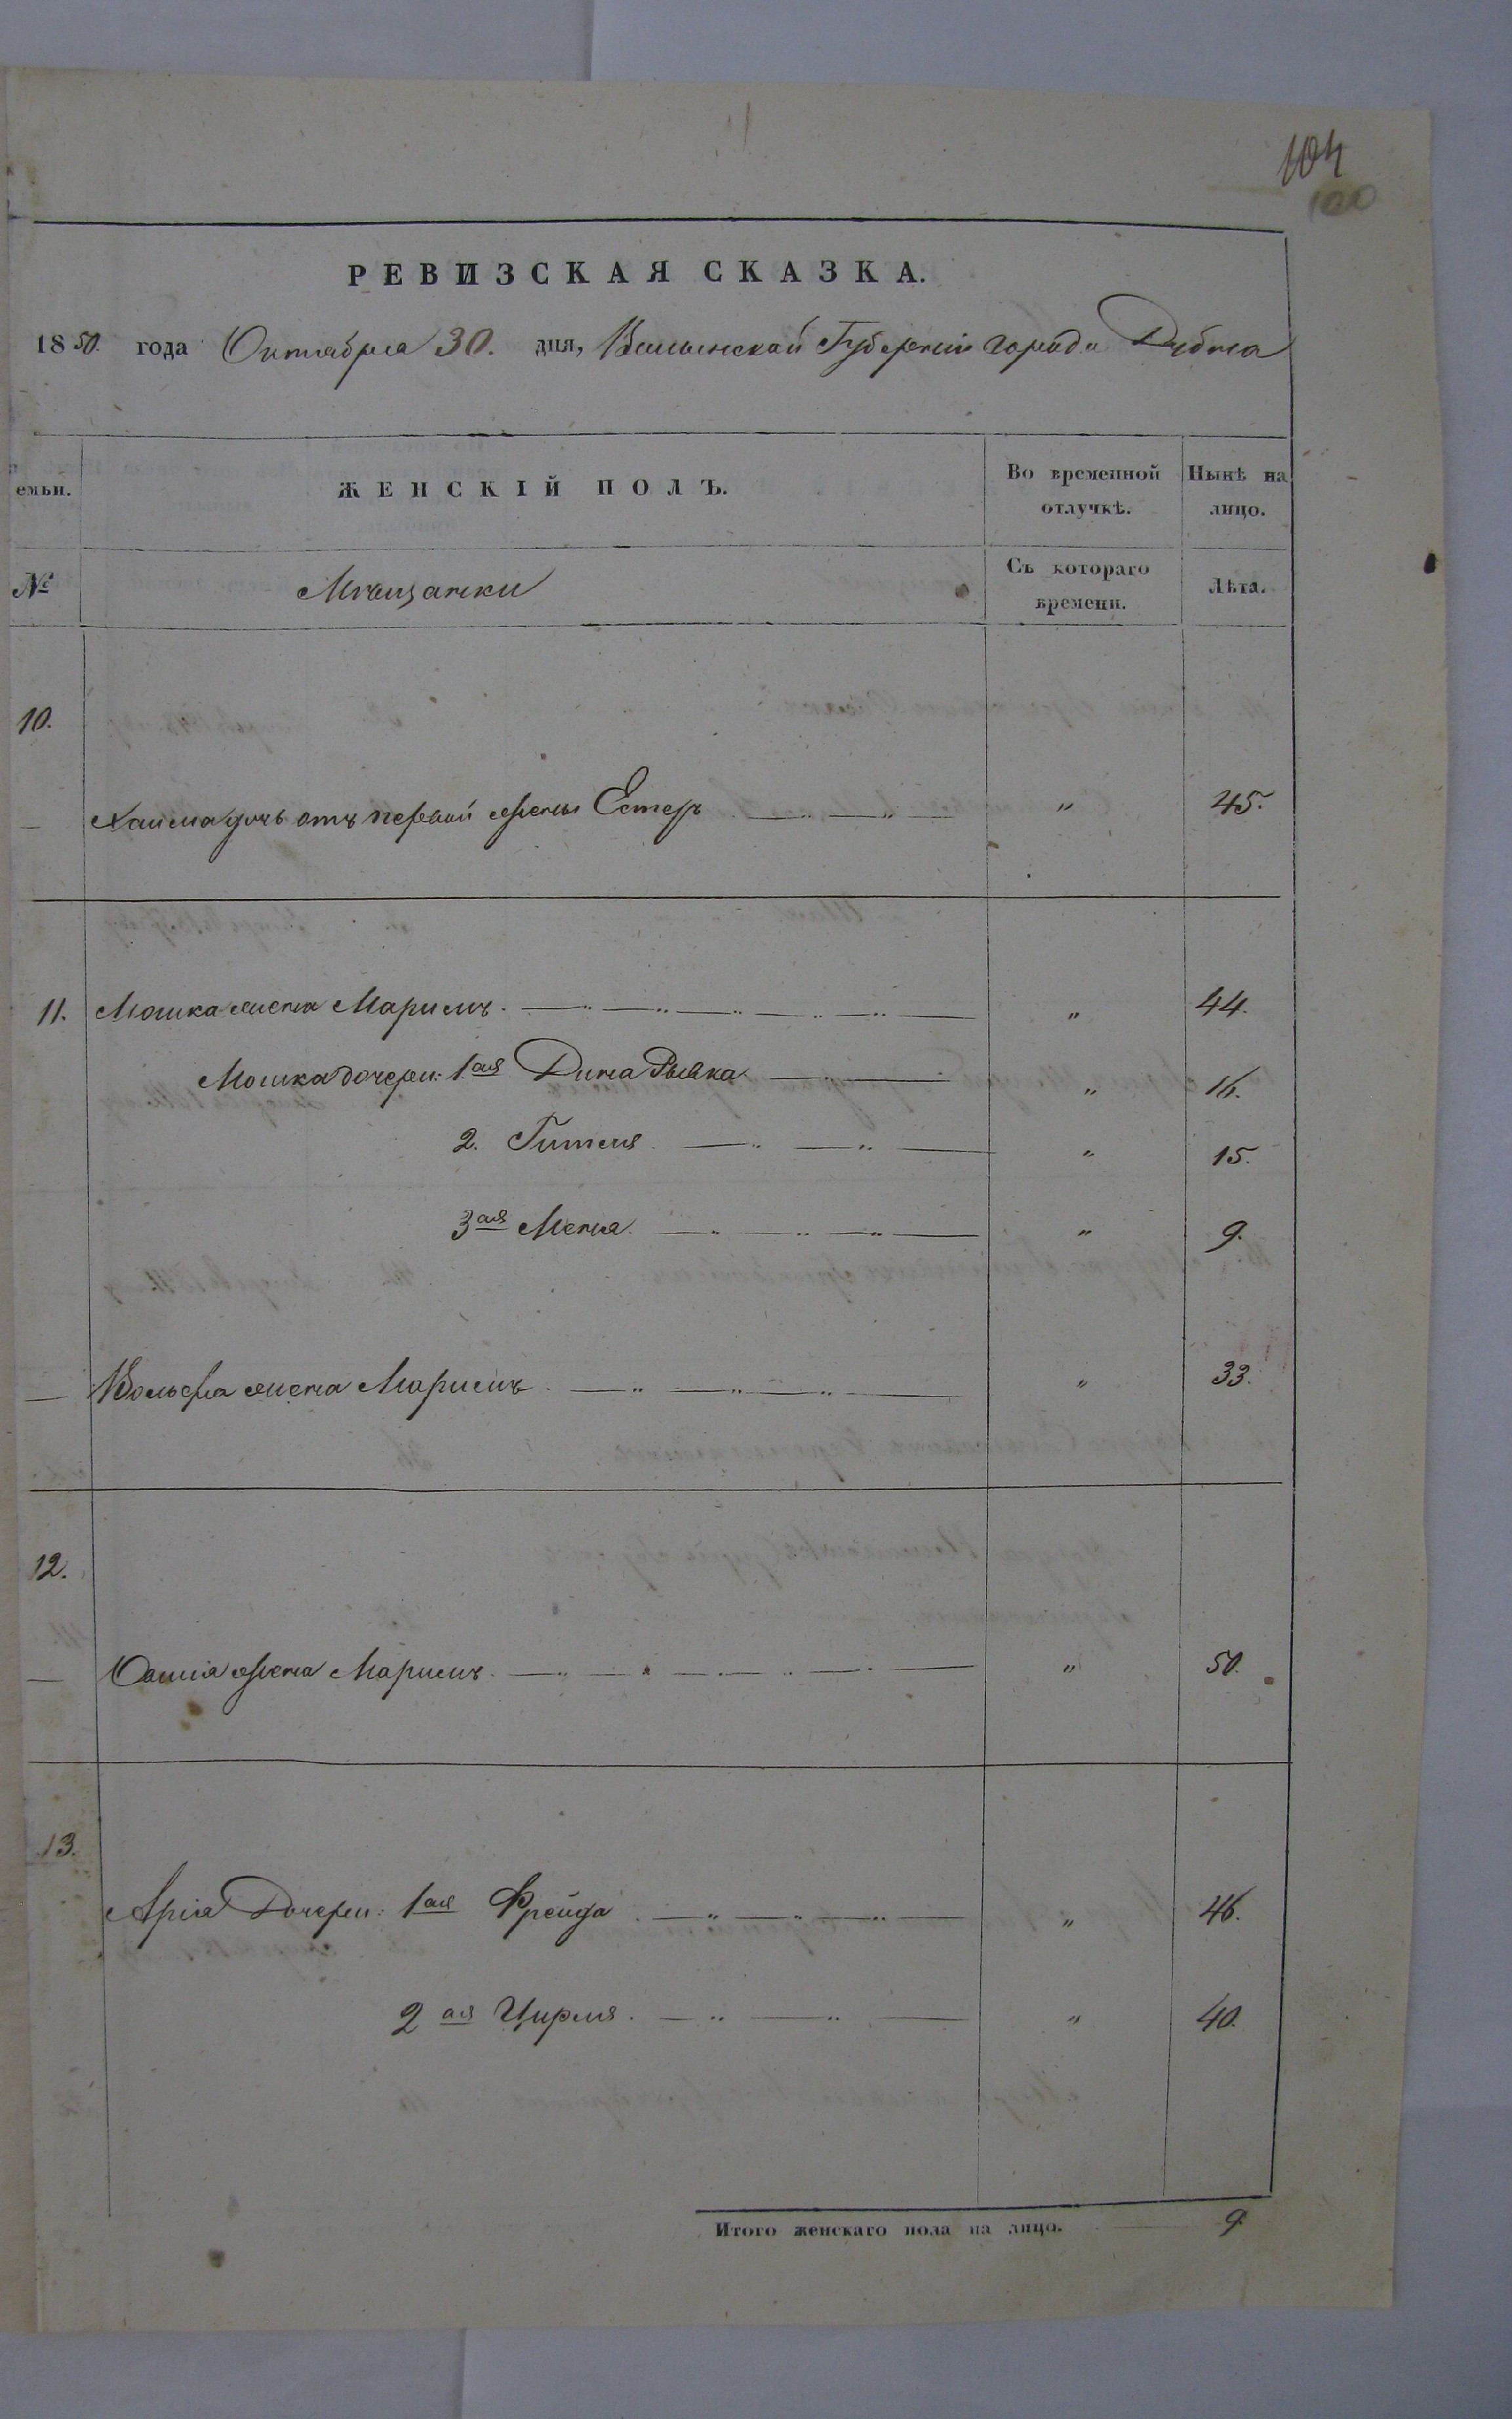 104
100
РЕВИЗСКАЯ СКАЗКА.
1850. года Октября 30. дня, Волынской Губернии города Дубна
емьи. ЖЕНСКІЙ ПОЛЪ. Во временной отлучкѣ. Нынѣ на лицо.
№ Мещанки Съ котораго времени. Лѣта.
10.
— Хаима дочь отъ первой жены Естеръ „ 45.
11. Мошка жена Мариемъ. „ 44.
Мошка дочери: 1ая Дина Рывка „ 16.
2. Гителя „ 15.
3ая Меня „ 9.
— Вольфа жена Мариемъ „ 33.
12.
— жена Мариемъ. „ 50.
13.
Арія Дочери: 1ая Фрейда „ 46.
2ая Цирля. „ 40.
Итого женскаго пола на лицо. 9